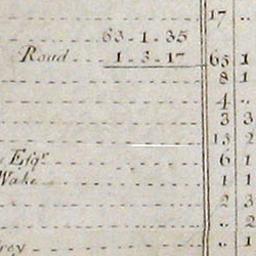 17 ..
63 . 1 . 35
Road . . . 1 . 3 . 17 65 1
8 1
4 ..
3 3
13 2
Esqr 6 1
Wake 1 1
2 3
.. 2
rey .. 1